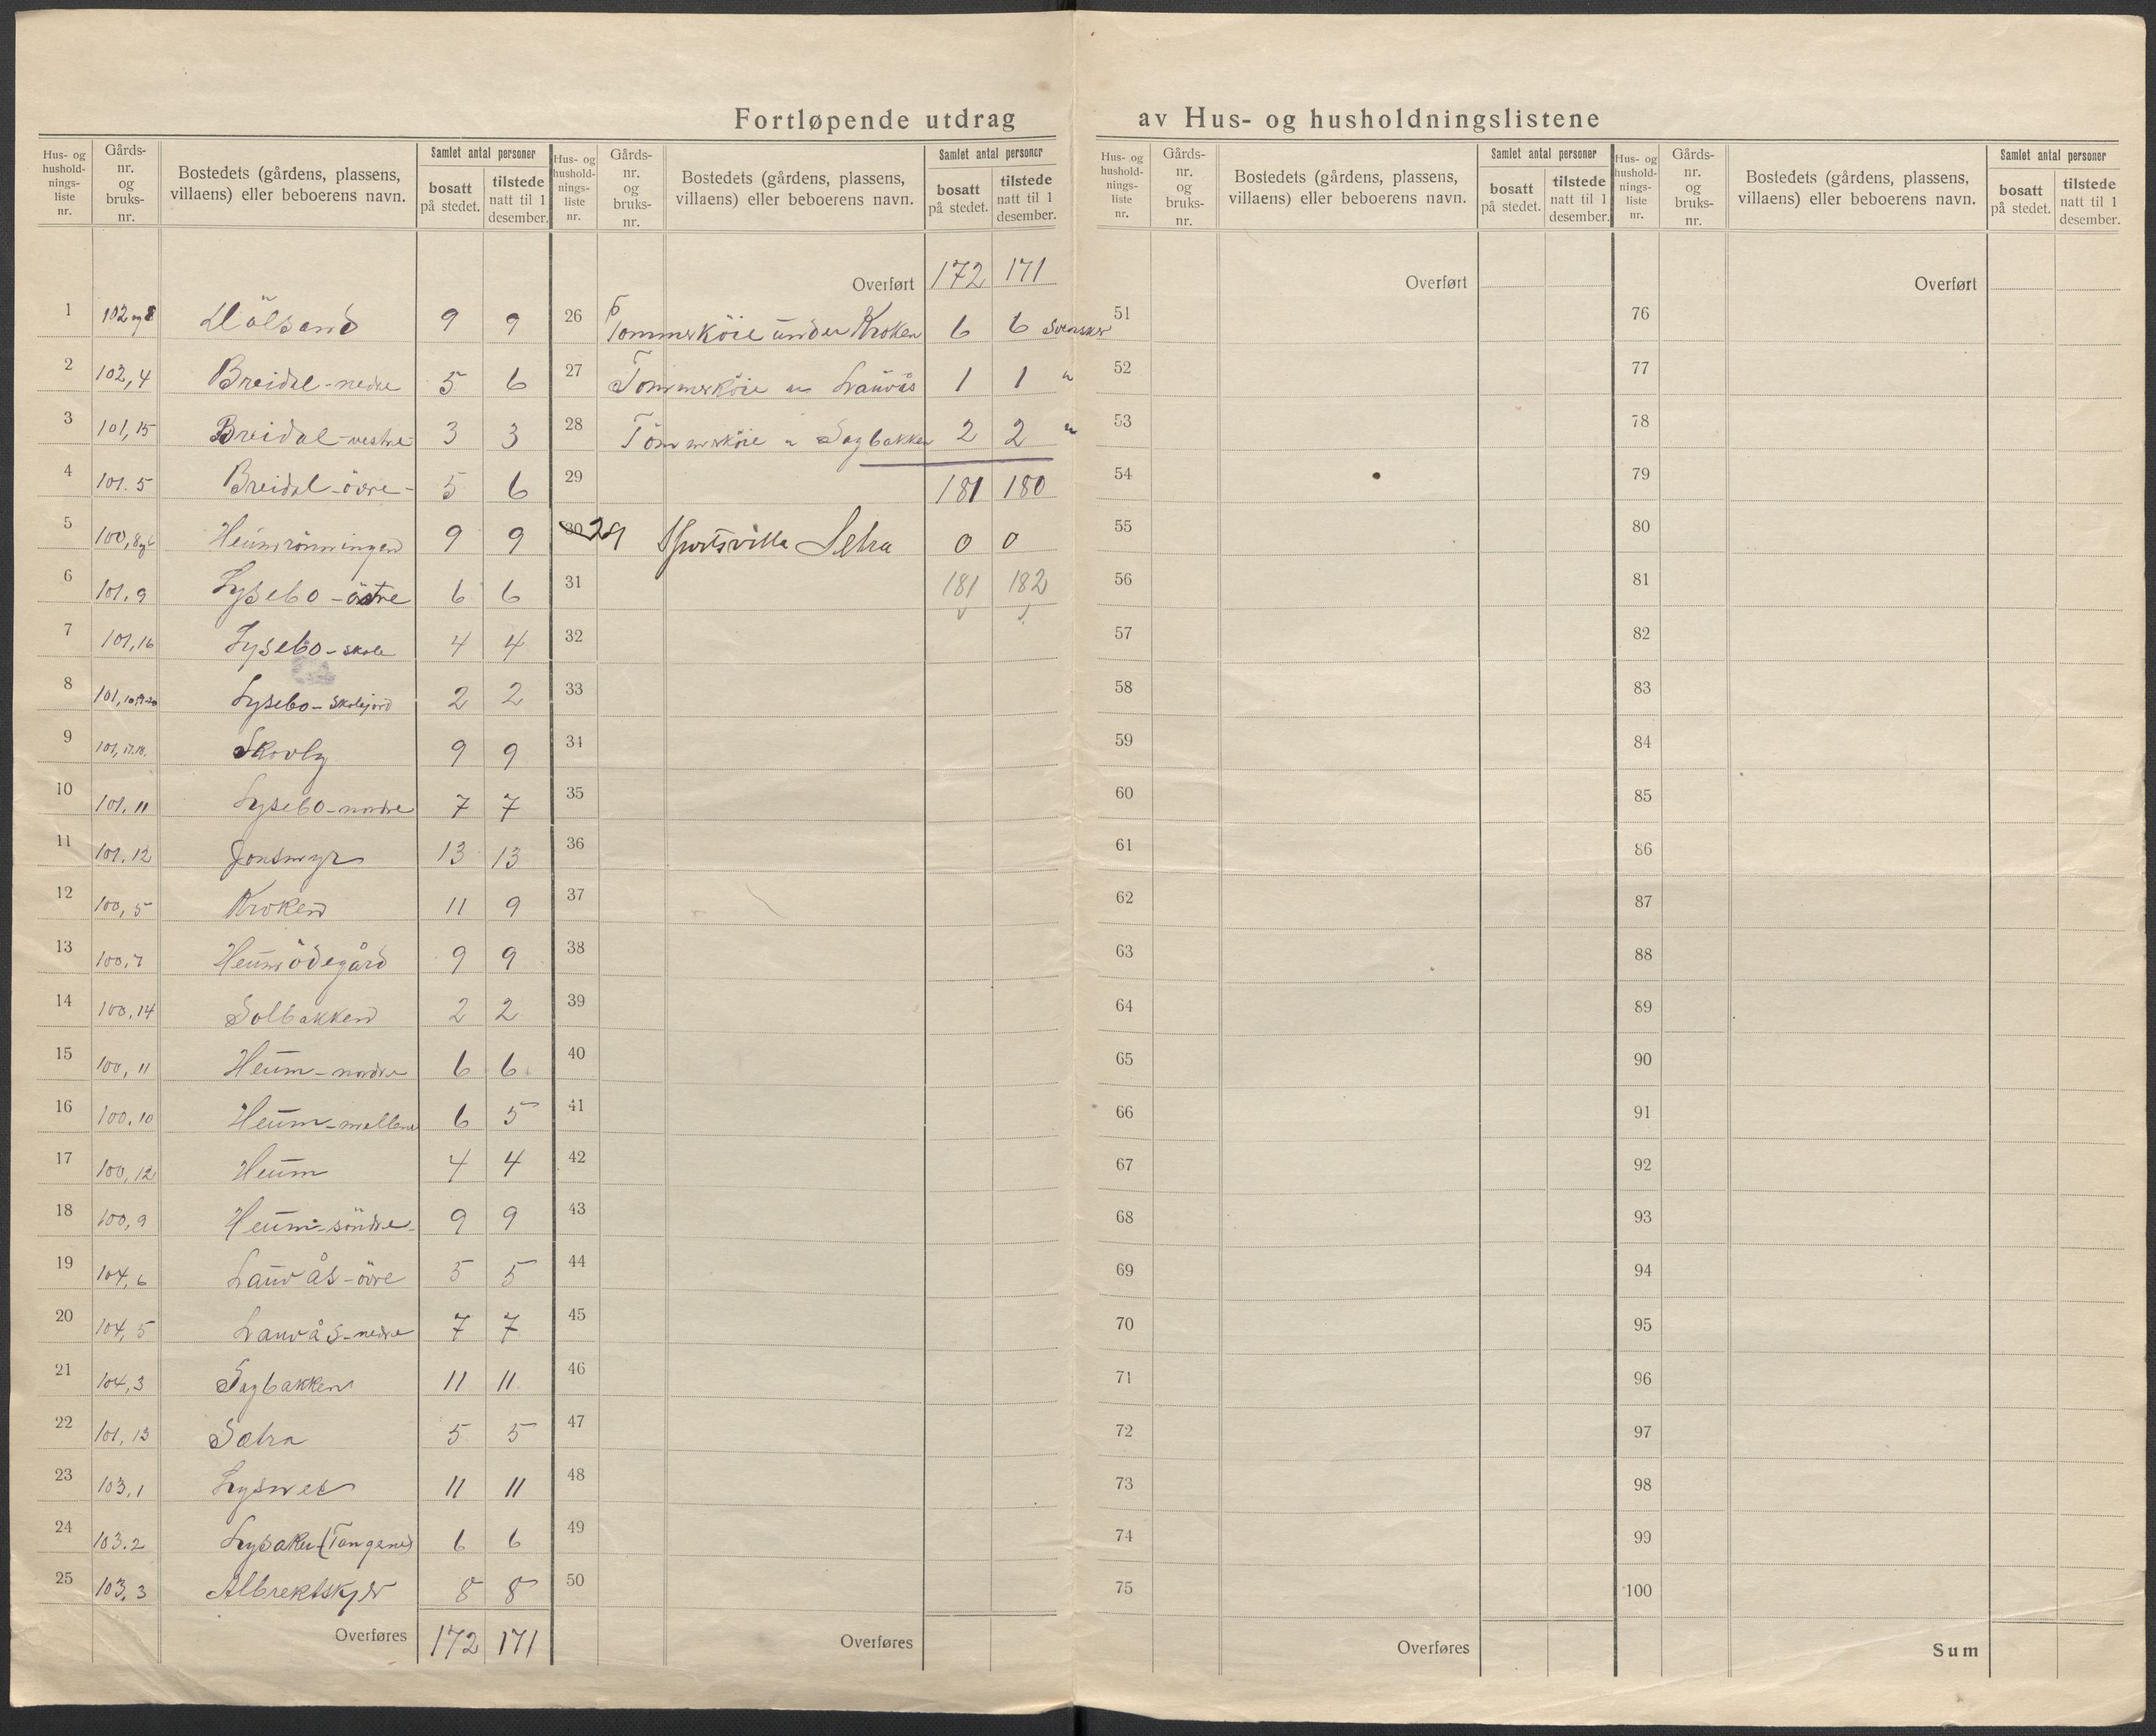 Fortløpende utdrag av Hus- og husholdningslistene
Hus- og hushold-nings-liste nr. | Gårds-nr. og bruks-nr. | Bostedets (gårdens, plassens, villaens) eller beboerens navn. | Samlet antal personer | bosatt på stedet. | tilstede natt til 1 desember.
1 102 og 8 Mölsand 9 9
2 102,4 Breidal-nedre 5 6
3 101,15 Breidal-vestre 3 3
4 101.5 Breidal-övre- 5 6
5 100,8 Heumrönningen 9 9
6 101.9 Lysebo-östre 6 6
7 101,16 Lysebo-skole 4 4
8 101, Lysebo-Skolejord 2 2
9 101,17.18. Skovly 9 9
10 101.11 Lysebo-nordre 7 7
11 101.12 Jonsmyr 13 13
12 100,5 Kroken 11 9
13 100,7 Heumödegård 9 9
14 100,14 Solbakken 2 2
15 100,11 Heum-nordre 6 6
16 100.10 Heum-mellem 6 5
17 100,12 Heum 4 4
18 100,9 Heum-söndre- 9 9
19 104,6 Lauvås-övre 5 5
20 104,5 Lauvås-nedre 7 7
21 104,3 Sagbakken 11 11
22 101,13 Sætra 5 5
23 103,1 Lysnes 11 11
24 103.2 Lysaker (Tangen) 6 6
25 103.3 Albrektskjer 8 8
Overføres 172 171
Hus- og hushold-nings-liste nr. | Gårds-nr. og bruks-nr. | Bostedets (gårdens, plassens, villaens) eller beboerens navn. | Samlet antal personer | bosatt på stedet. | tilstede natt til 1 desember.
Overført 172 171
26 Tommerköie under Kroken 6 6 Svensker
27 Tommerköie " Lauvås 1 1 "
28 Tömmerköie " Sagbakken 2 2 "
29 181 180
30 29 Sportsvilla Setra 0 0
31 181 182
32
33
34
35
36
37
38
39
40
41
42
43
44
45
46
47
48
49
50
Overføres
Hus- og hushold-nings-liste nr. | Gårds-nr. og bruks-nr. | Bostedets (gårdens, plassens, villaens) eller beboerens navn. | Samlet antal personer | bosatt på stedet. | tilstede natt til 1 desember.
Overført
51
52
53
54
55
56
57
58
59
60
61
62
63
64
65
66
67
68
69
70
71
72
73
74
75
Overføres
Hus- og hushold-nings-liste nr. | Gårds-nr. og bruks-nr. | Bostedets (gårdens, plassens, villaens) eller beboerens navn. | Samlet antal personer | bosatt på stedet. | tilstede natt til 1 desember.
Overført
76
77
78
79
80
81
82
83
84
85
86
87
88
89
90
91
92
93
94
95
96
97
98
99
100
Sum